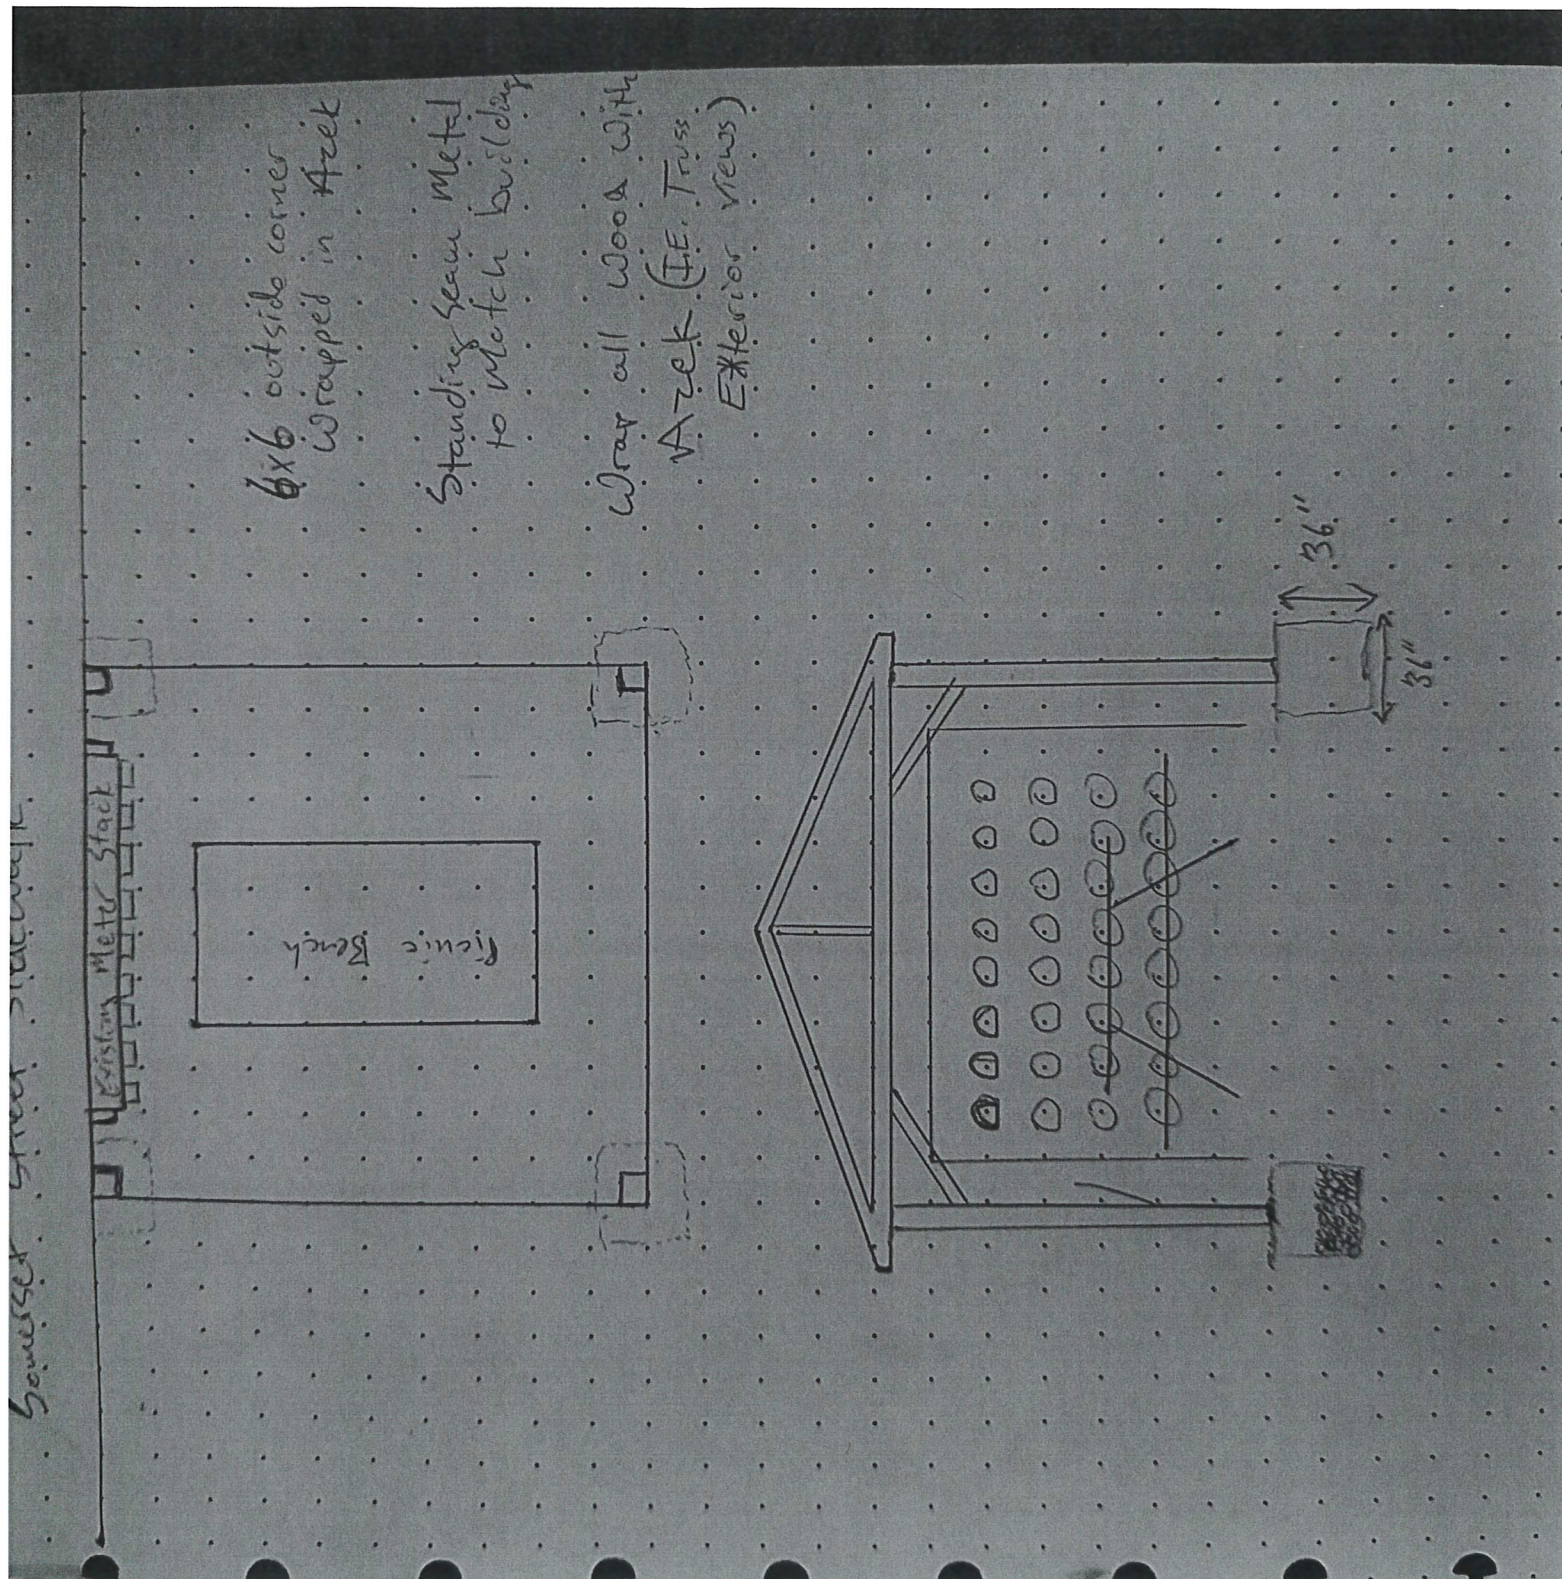 Somerset Street Sidewalk
Existing Meter Stack
Picnic
Bench
6x6 outside corner
Wrapped in Azek
Standing Seam Metal
to Match building
Wrap all Wood With
Azek (I.E. Truss
Exterior views)
36"
36"